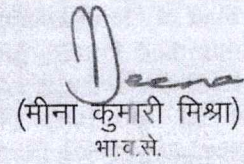 Meena
(मीना कुमारी मिश्रा)
भा.व.से.